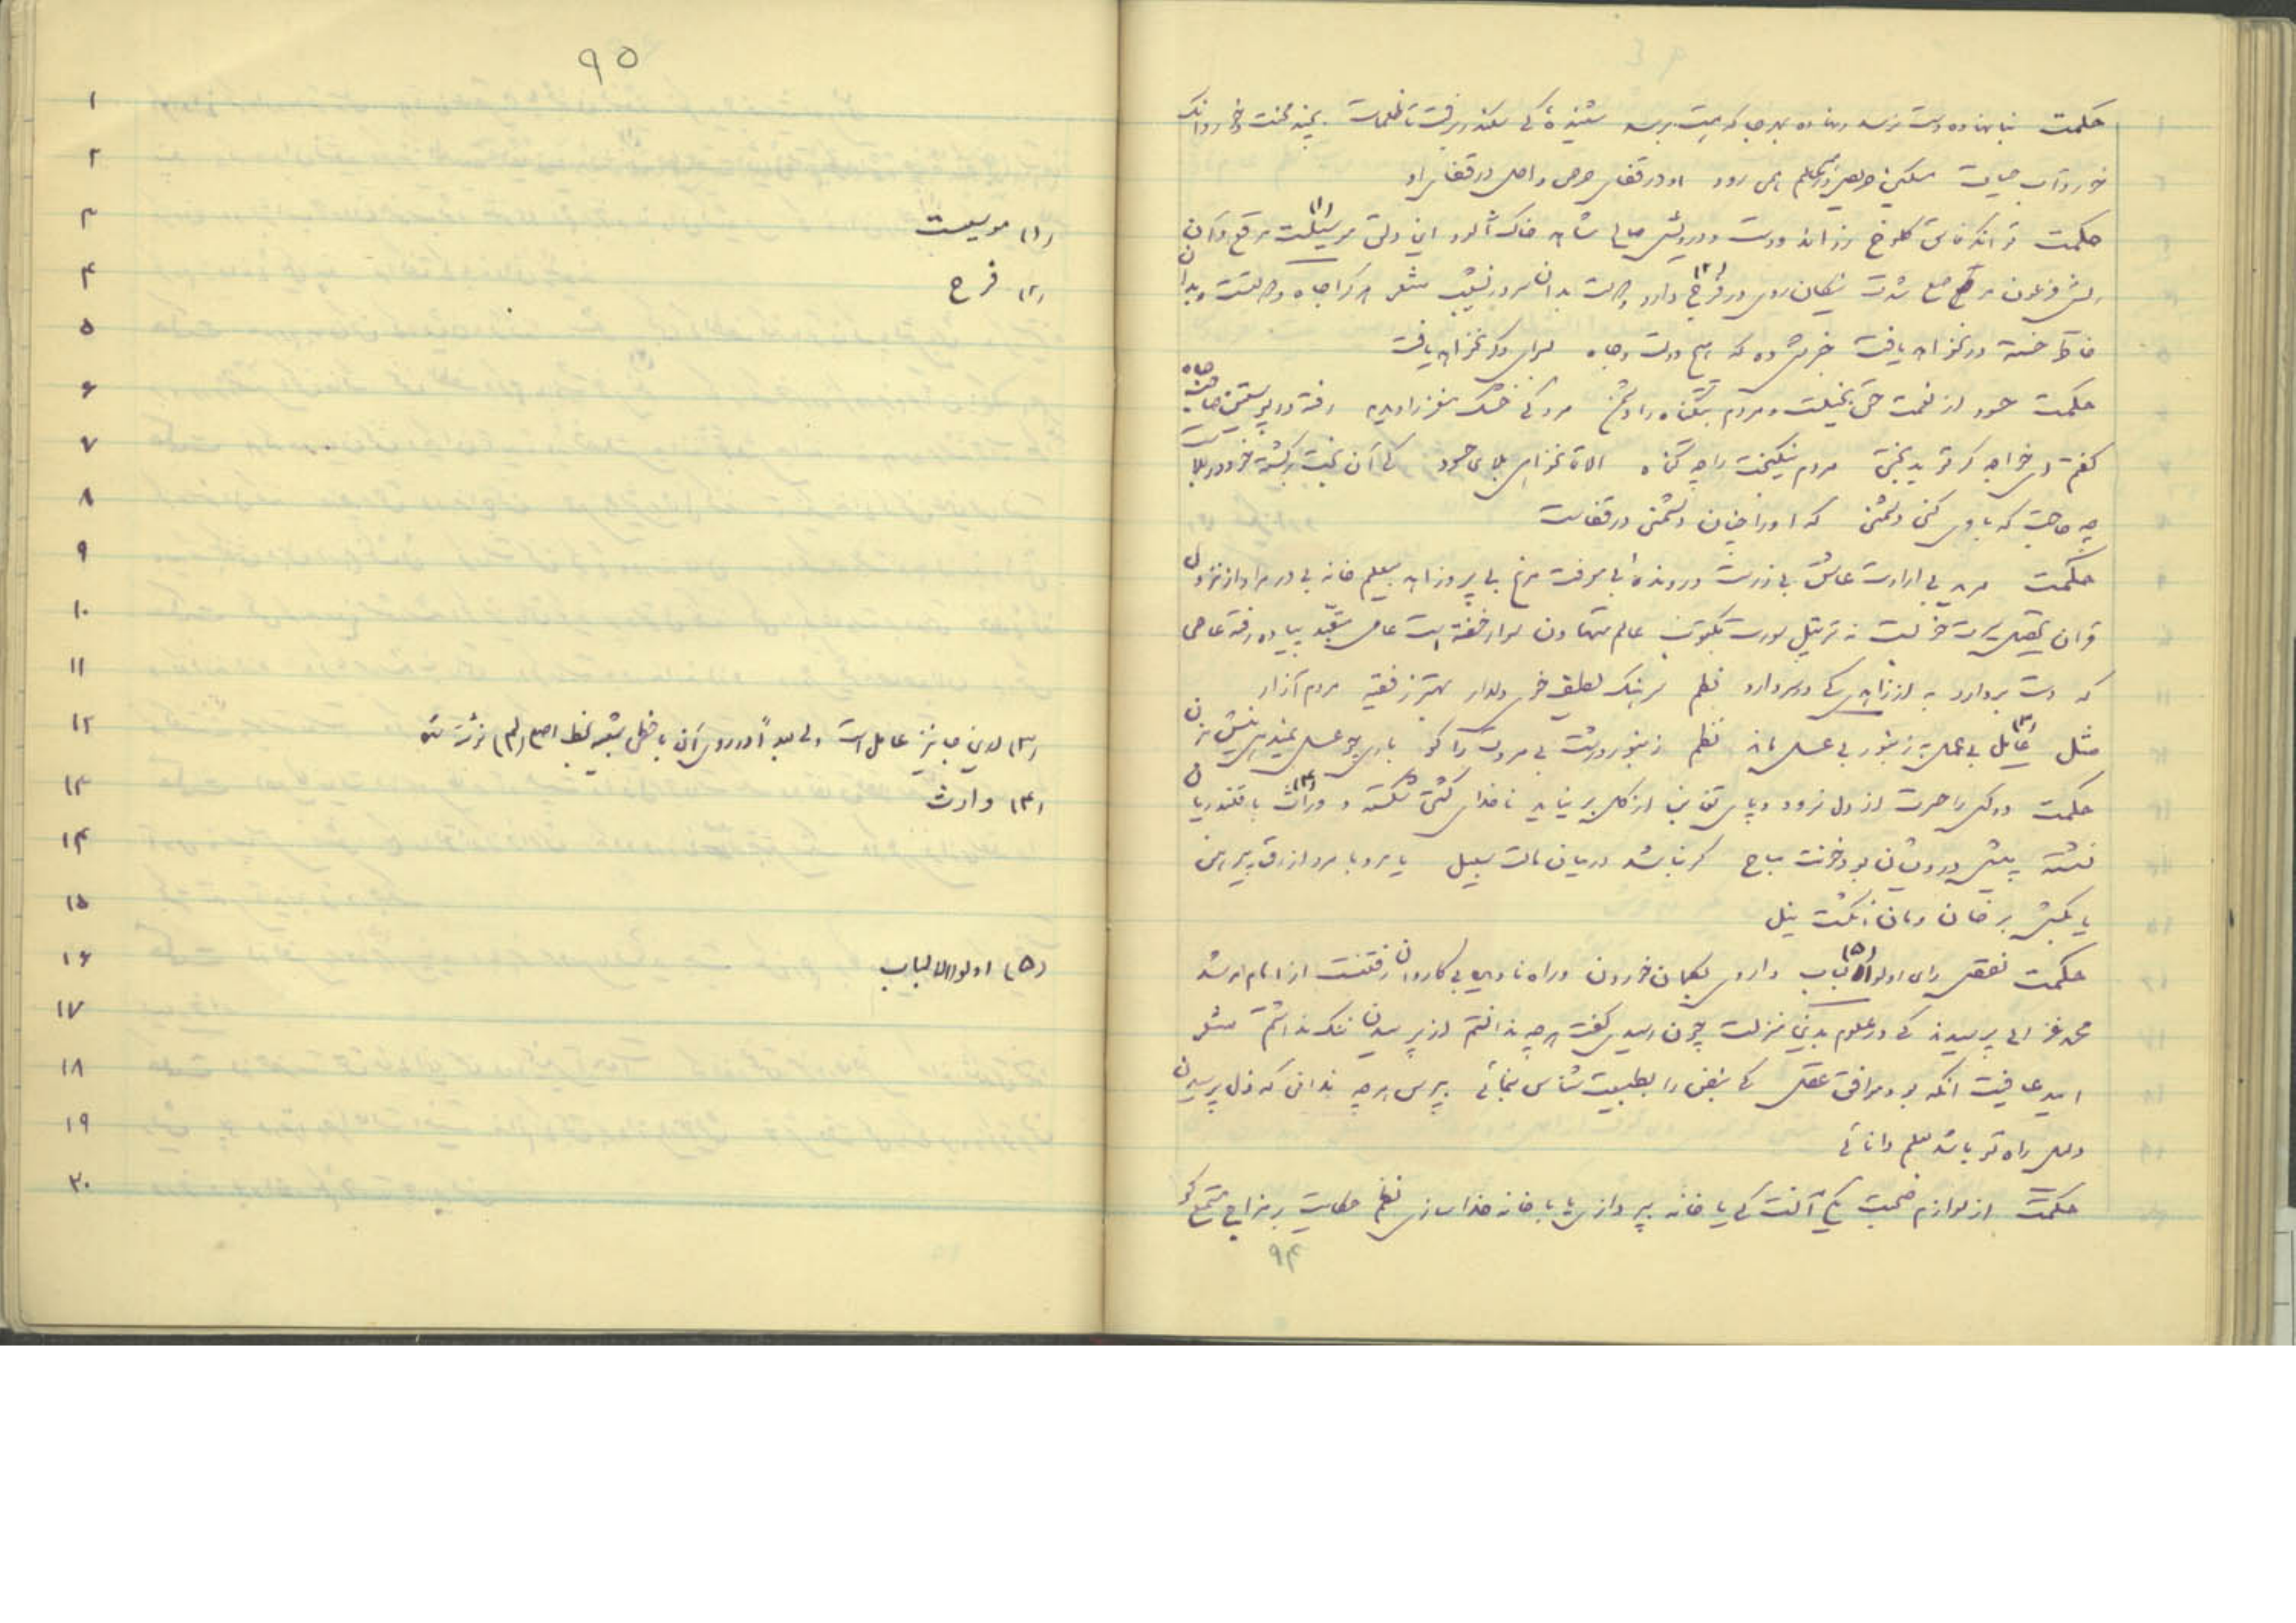 حکمت بنانهاده دست نرسد ونهاده بهر جا که هست برسد شنیدهٔ کی سکندر برفت تا ظلمات بچند محنت وخورد آنک
خورد آب حیات مسکین حریص در همه عالم همی رود او در قفای حرص و اجل در قفای او
حکمت توانگر فاسق کلوخ زراندودست ودرویش صالح شاهد خاک آلود این دلق موسیکت (۱) مرقع وآن
ریش فرعون مرصع شدت نیکان روی در فرج (۲) دارد ودولت بدان سر در نشیب شعر هرکرا جاه ودولتست وبدان
خاطر خسته در نخواهد یافت خبرش ده که هیچ دولت وجاه بسرای دگر نخواهد یافت
حکمت حسود از نعمت حق بخیلست ومردم بیگناه را دشمن مردکی خشک مغز را دیدم رفته در پوستین صاحب جاه
گفتم ای خواجه گر تو بدبختی مردم نیکبخت را چه گناه الا تا نخواهی بلا بر حسود کی آن بخت برگشته خود در بلاست
چه حاجت که با وی کنی دشمنی که او را چنان دشمنی در قفاست
حکمت مرید بی ارادت عاشق بی زرست ورونده بی معرفت مرغ بی پر وزاهد بی علم خانه بی در مراد از نزول
قران تحصیل سیرت خوبست نه ترتیل سورت مکتوب عالم متهاون سوار خفته است عامی متعبد پیاده رفته عاصی
که دست بردارد به از زاهدی کی در سر دارد نظم سرهنگ لطیف خوی دلدار بهتر ز فقیه مردم آزار
مثل عایل (۳) بی عمل بزنبور بی عسل ماند نظم زنبور درشت بی مروت را گو باری چو عسل نمیدهی نیش مزن
حکمت دو کس را حسرت از دل نرود وپای تغابن از گل بر نیاید ناخدای کشتی شکسته و وراث (۴) با قلندریان
نشسته پیش درویشان بود خونت مباح گر نباشد در میان مالت سبیل یا مرو با مرد ازرق پیرهن
یا بکش بر خان ومان انگشت نیل
حکمت نقص رای اولوا الالباب (۵) داروی بگمان خوردن وراه نادیده بی کاروان رفتنست از امام مرشد
محمد غزالی پرسیدند کی در علوم بدین منزلت چون رسیدی گفت هر چه ندانستم از پرسیدن ننگ نداشتم شعر
امید عافیت آنگه بود موافق عقل کی نبض را بطبیعت شناس بنمائی بپرس هرچه ندانی که ذل پرسیدن
دلیل راه تو باشد بعلم دانائی
حکمت از لوازم صحبت یکی آنست کی یا خانه بپردازی یا با خانه خدا بسازی نظم حکایت بر مزاج مستمع گو
۹۴
۹۵
۱
۲
۳ (۱) موسیست
۴ (۲) فرح
۵
۶
۷
۸
۹
۱۰
۱۱
۱۲ (۳) بدین جا نیز عامل است ولی بعداً در روی آن با خطی شبیه بخط اصل (لم) نوشته شد
۱۳ (۴) وارث
۱۴
۱۵
۱۶ (۵) اولوالالباب
۱۷
۱۸
۱۹
۲۰